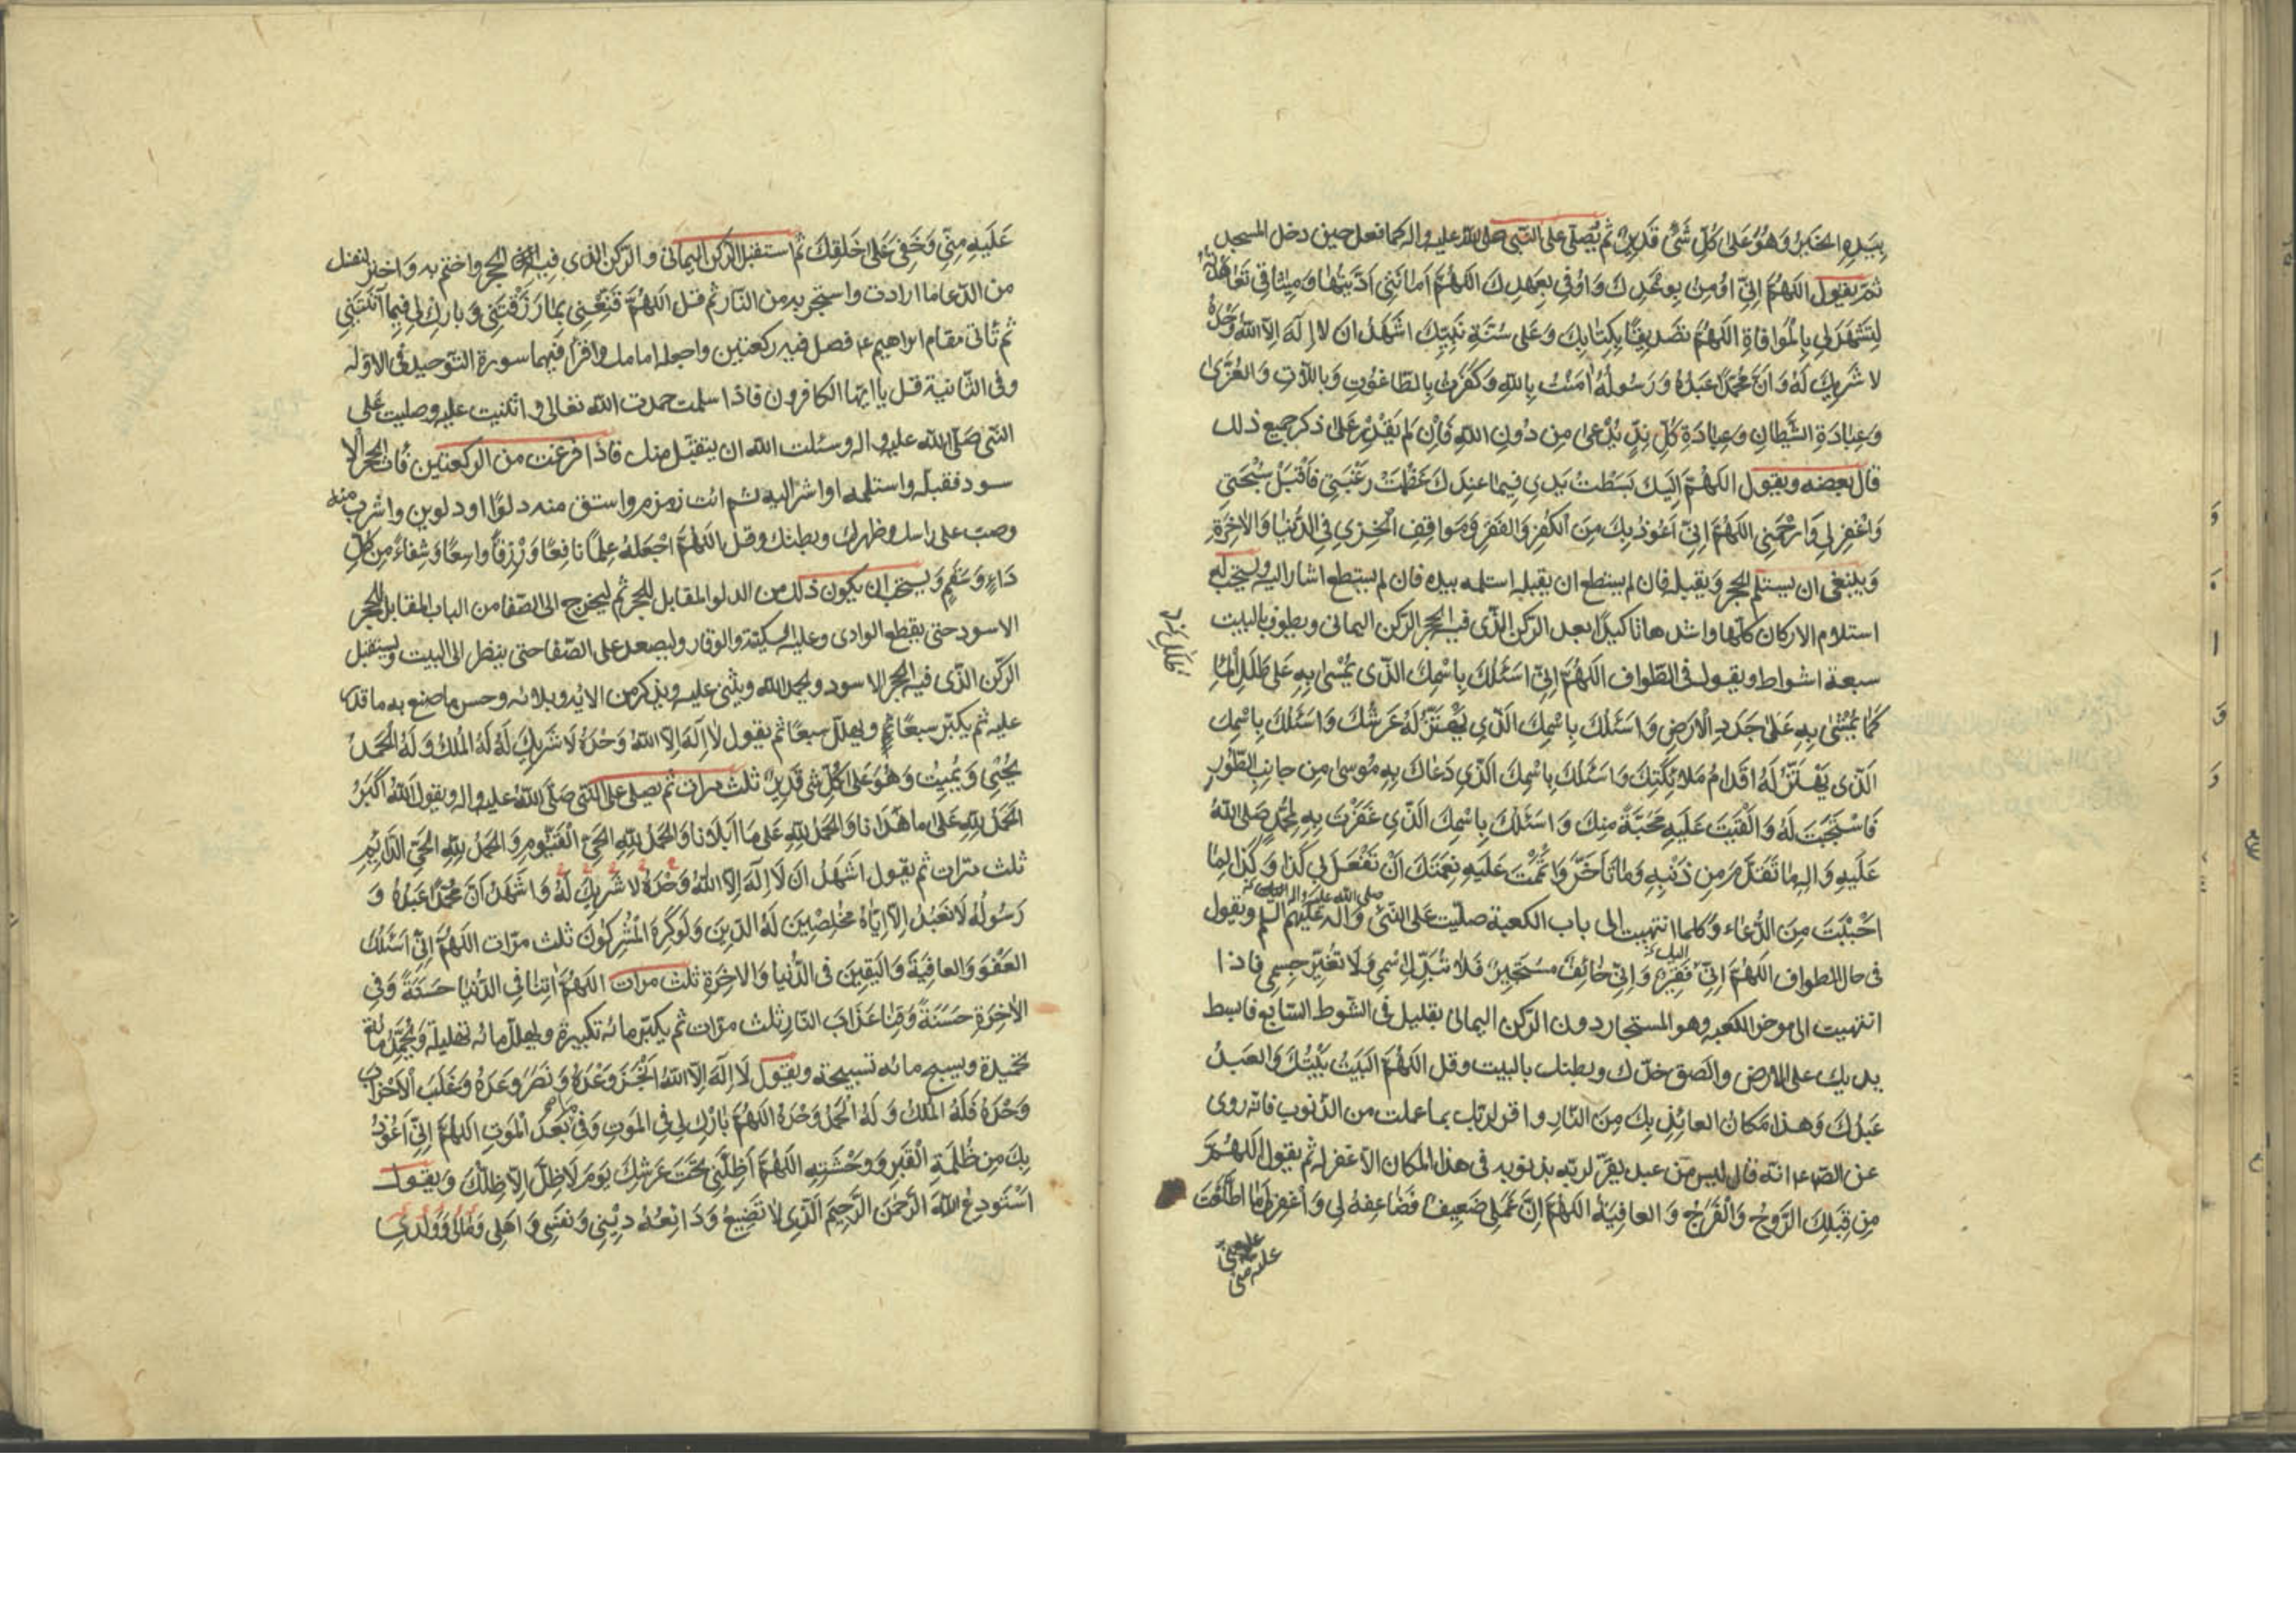 بِيَدِهِ الخَيْرُ وَهُوَ عَلىٰ كُلِّ شَئٍ قَدِيرٌ ثم يُصلّى على النّبى صلى اللّه عليه واله كما فعل حين دخل المسجد
ثمّ يقول اللّهُمَّ اِنّى اُومِنُ بِوَعْدِكَ وَاُوفى بِعَهْدِكَ اللّهُمَّ اَمانَتِى اَدَّيْتُها وَمِيثاقى تَعاهَدْتُهُ
لِتَشْهَدَ لِى بِالْمُوافاةِ اللّهُمَّ تَصْدِيقًا بِكِتابِكَ وَعَلى سُنَّةِ نَبِيِّكَ اَشْهَدُ ان لا اِلهَ اِلاّ اللّهُ وَحْدَهُ
لا شَرِيكَ لَهُ وَانَّ مُحَمَّدًا عَبْدُهُ وَرَسُولُهُ اٰمَنْتُ بِاللّهِ وَكَفَرْتُ بِالطّاغُوتِ وَبِاللاّتِ وَالعُزّىٰ
وَعِبادَةِ الشَّيْطانِ وَعِبادَةِ كُلِّ نِدٍّ يُدْعى مِن دُونِ اللّهِ فَاِنْ لَم يَقْدِرْ عَلىٰ ذكر جميع ذلك
قال بعضه ويقول اللّهُمَّ اِلَيْكَ بَسَطْتُ يَدِى فِيما عِنْدَكَ عَظُمَتْ رَغْبَتِى فَاقْبَلْ سُبْحَتِى
وَاغْفِرْ لِى وَارْحَمْنِى اللّهُمَّ اِنِّى اَعُوذُ بِكَ مِنَ الْكُفْرِ وَالفَقْرِ وَمَواقِفِ الْخِزْىِ فِى الدُّنْيا وَالاٰخِرَةِ
وَينبغى ان يستلم الحجر وَيقبله فان لم يستطع ان يقبله استلمه بيده فان لم يستطع اشار اليه ويستحب له
استلام الاركان كلّها واشدها تاكيدًا بعد الركن الّذى فيه الحجر الركن اليمانى ويطوف بالبيت
سبعة اشواط ويقول فى الطّواف اللّهُمَّ اِنِّى اَسْئَلُكَ بِاسْمِكَ الَّذى يُمْشىٰ بِهِ عَلىٰ طَلَلِ الْماءِ
كَما يُمْشىٰ بِهِ عَلىٰ جَدَدِ الْاَرضِ وَاَسْئَلُكَ بِاسْمِكَ الَّذِى يَهْتَزُّ لَهُ عَرْشُكَ وَاَسْئَلُكَ بِاسْمِكَ
الَّذى يَهْتَزُّ لَهُ اَقْدامُ مَلائِكَتِكَ وَاَسْئَلُكَ بِاسْمِكَ الَّذِى دَعاكَ بِهِ مُوسىٰ مِن جانِبِ الطُّورِ
فَاسْتَجَبْتَ لَهُ وَالْقَيْتَ عَلَيْهِ مَحَبَّةً مِنكَ وَاَسْئَلُكَ بِاسْمِكَ الَّذِى غَفَرْتَ بِهِ لِمُحَمَّدٍ صَلَى اللّهُ
عَلَيْهِ وَالِهِ ما تَقَدَّمَ مِن ذَنْبِهِ وَما تَاَخَّرَ وَاَتْمَمْتَ عَلَيْهِ نِعْمَتَكَ اَنْ تَفْعَلَ بِى كَذا وَكَذا لِما
اَحْبَبْتَ مِنَ الدُّعاء وَكلما انتهيت الى باب الكعبة صلّيت عَلى النّبى وَاله عَلَيهم السلم ويقول
فى حال الطواف اللّهُمَّ اِنِّى اليك فَقِيرٌ وَاِنِّى خائِفٌ مُسْتَجِيرٌ فَلا تُبَدِّلِ اسْمِى وَلا تُغَيِّر جِسمِى فاذا
انتهيت الى موخر الكعبه وهو المستجار دون الركن اليمانى بقليل فى الشوط السّابع فابسط
يديك على الارض والصق خدّك وبطنك بالبيت وقل اللّهُمَّ الْبَيْتُ بَيْتُكَ وَالعَبْدُ
عَبْدُكَ وَهذا مَكانُ العائِذِ بِكَ مِنَ النّارِ واقر لربّك بما عملت من الذّنوب فانه روى
عن الصّ ع انّه قال ليس من عبد يقرّ لربّه بذنوبه فى هذا المكان الاّ غفر له ثم يقول اللّهُمَّ
مِن قِبَلِكَ الرَّوْحُ وَالْفَرَجُ وَالعافِيَةُ اللّهُمَّ اِنَّ عَمَلِى ضَعِيفٌ فَضاعِفْهُ لِى وَاغْفِرْ لِى ما اطَّلَعْتَ
عَلَيهِ مِنِّى وَخَفِىَ عَلىٰ خَلقِكَ ثم استقبل الركن اليمانى والركن الذى فيه الحجر واختم به وَاختر لنفسك
من الدّعاء ما اردت واستجر به من النّار ثم قل اللّهُمَّ قَنِّعْنِى بِما رَزَقْتَنِى وَبارِك لِى فِيما اٰتَيْتَنِى
ثم تاتى مقام ابراهيم ع فصل فيه ركعتين واجعله امامك واقرأ فيهما سورة التّوحيد فى الاوله
وفى الثّانية قل يا ايّها الكافرون فاذا سلمت حمدت اللّه تعالى واثنيت عليه وصليت عَلى
النّبى صَلّى اللّه عليه واله وسئلت اللّه ان يتقبّل منك فاذا فرغت من الركعتين فات الحجر الا
سود فقبله واستلمه او اشر اليه ثم ائت زمزم واستق منه دلوًا او دلوين واشرب منه
وصبّ على راسك وظهرك وبطنك وقل اللّهُمَّ اجْعَلْهُ عِلْمًا نافِعًا وَرِزْقًا واسِعًا وَشِفاءً مِن كُلِّ
داءٍ وَسُقْمٍ وَيستحب ان يكون ذلك من الدلو المقابل للحجر ثم ليخرج الى الصّفا من الباب المقابل للحجر
الاسود حتى يقطع الوادى وعليه السكينة والوقار وليصعد على الصّفا حتى ينظر الى البيت ويستقبل
الركن الّذى فيه الحجر الاسود ويحمد اللّه ويثنى عليه ويذكر من الائه وبلائه وحسن ما صنع به ما قدر
عليه ثم يكبّر سبعًا ويهلل سبعًا ثم يقول لا اِلٰهَ اِلاّ اللّهُ وَحْدَهُ لا شَرِيكَ لَهُ لَهُ المُلْكُ وَلَهُ الْحَمْدُ
يُحْيِى وَيُمِيتُ وَهُوَ عَلىٰ كُلِّ شئ قَدِيرٌ ثلث مرات ثم يصلى على النّبى صَلّى اللّه عليه واله ويقول اَللّهُ اَكْبَرُ
الْحَمْدُ لِلّهِ عَلىٰ ما هَدانا وَالْحَمْدُ لِلّهِ عَلى ما اَبْلانا وَالْحَمْدُ لِلّهِ الْحَىِّ الْقَيُّومِ وَالْحَمْدُ لِلّهِ الْحَىِّ الدّائِمِ
ثلث مرّات ثم يقول اَشْهَدُ اَن لا اِلٰهَ اِلاّ اللّهُ وَحْدَهُ لا شَرِيكَ لَهُ وَاَشْهَدُ اَنَّ مُحَمَّدًا عَبْدُهُ وَ
رَسُولُهُ لا نَعْبُدُ اِلاّ اِيّاهُ مُخْلِصِينَ لَهُ الدِّينَ وَلَوْ كَرِهَ الْمُشْرِكُونَ ثلث مرّات اللّهُمَّ اِنِّى اَسْئَلُكَ
العَفْوَ وَالعافِيَةَ وَالْيَقِينَ فى الدُّنْيا وَالاخِرَةِ ثلث مرات اللّهُمَّ اٰتِنا فِى الدُّنْيا حَسَنَةً وَفِى
الاٰخِرَةِ حَسَنَةً وَقِنا عَذابَ النّارِ ثلث مرّات ثم يكبّر مائه تكبيرة ويهلل مائه تهليلة وَيُحَمِّدُ مائة
تحميدة ويسبح مائه تسبيحة ويقول لا اِلٰهَ اِلاّ اللّهُ اَنْجَزَ وَعْدَهُ وَنَصَرَ عَبْدَهُ وَغَلَبَ الْاَحْزابَ
وَحْدَهُ فَلَهُ المُلْكُ وَلَهُ الْحَمْدُ وَحْدَهُ اللّهُمَّ بارِكْ لِى فِى الْمَوتِ وَفى ما بَعْدَ الْمَوتِ اللّهُمَّ اِنِّى اَعُوذُ
بِكَ مِن ظُلْمَةِ الْقَبْرِ وَوَحْشَتِهِ اللّهُمَّ اَظِلَّنِى تَحْتَ عَرْشِكَ يَوْمَ لا ظِلَّ اِلاّ ظِلُّكَ وَيقول
اَسْتَودِعُ اللّهَ الرَّحْمٰنَ الرَّحِيمَ الَّذِى لا تَضِيعُ وَدائِعُهُ دِيْنِى وَنَفْسِى وَاَهْلِى وَمالى وَوَلَدِى